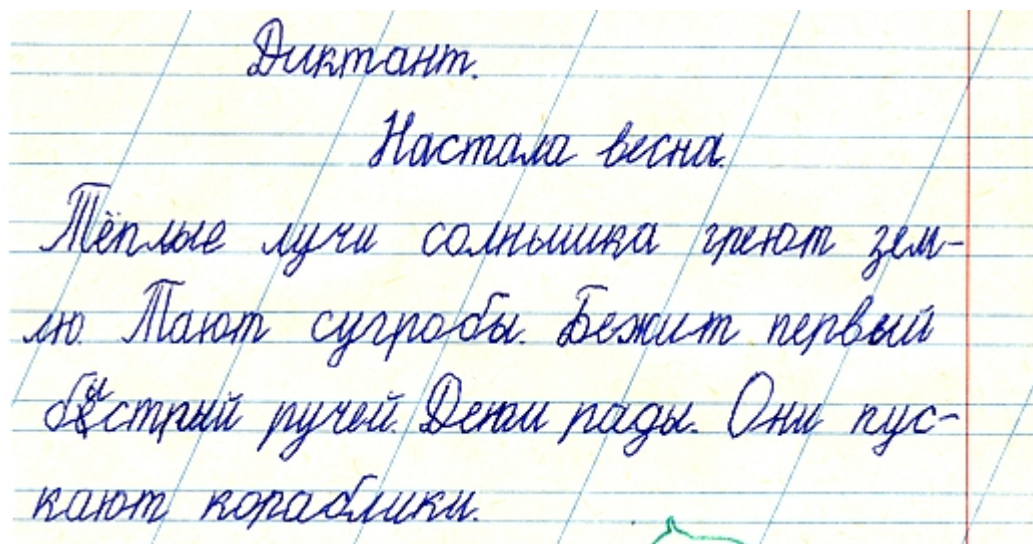 Диктант.
Настала весна.
Тёплые лучи солнышка греют зем-
лю. Тают сугробы. Бежит первый
быстрый ручей. Дети рады. Они пус-
кают кораблики.